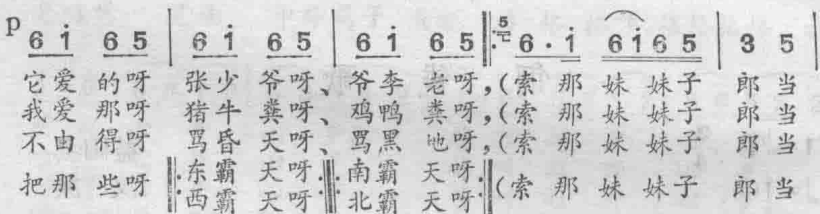 p 6 i 6 5 | 6 i 6 5 | 6 i 6 5 :‖ 5 6 · i 6 i 6 5 | 3 5 |
它爱的呀 张少爷呀、爷李老呀,(索那妹妹子郎当
我爱那呀 猪牛粪呀、鸡鸭粪呀,(索那妹妹子郎当
不由得呀 骂昏天呀、骂黑地呀,(索那妹妹子郎当
把那些呀 ‖:东霸天呀:‖:南霸天呀.‖(索那妹妹子郎当
西霸天呀 北霸天呀